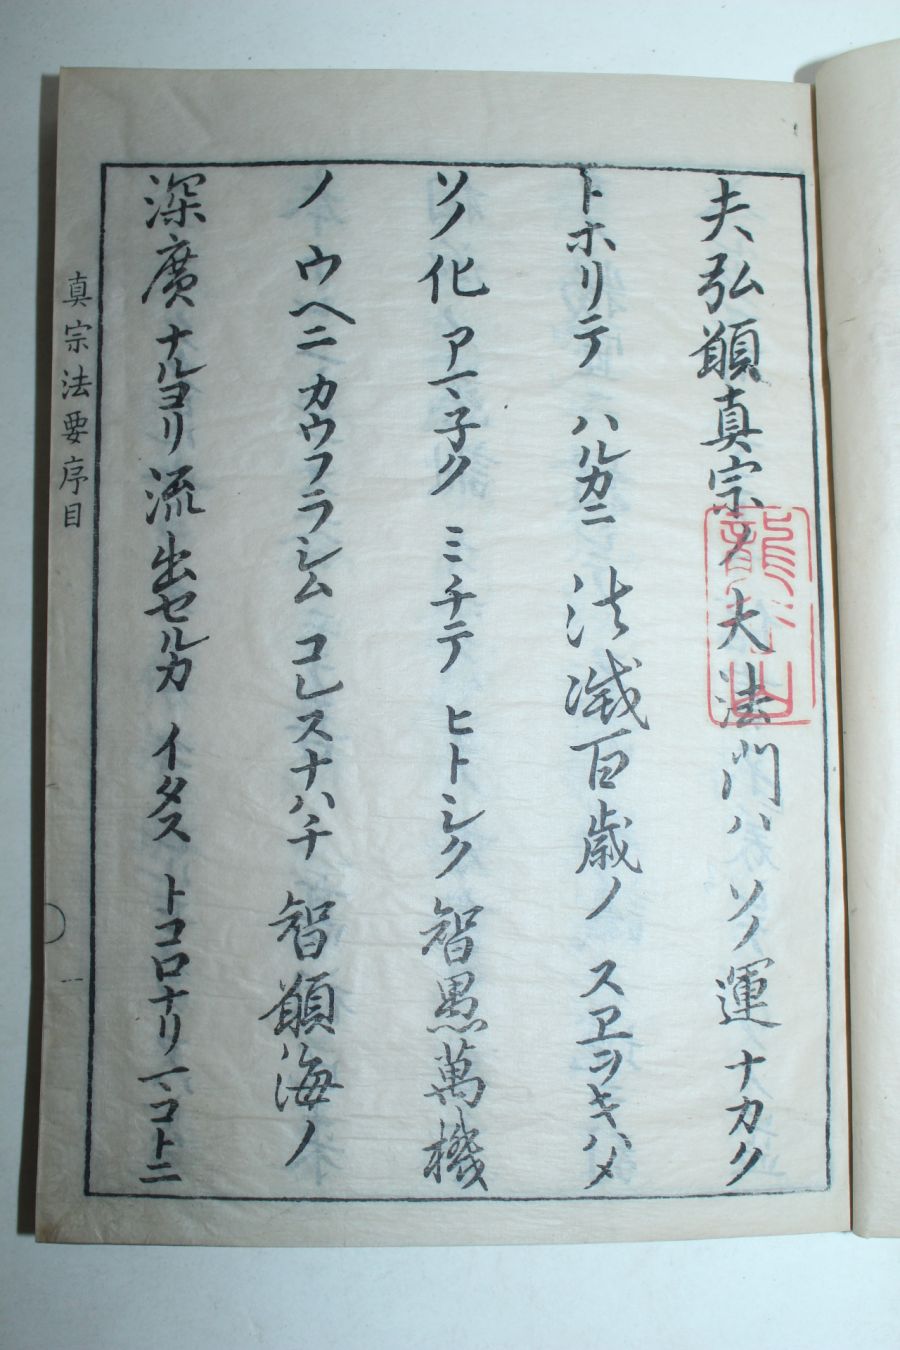 夫弘願真宗ノ大法門ハソノ運ナカク
トホリテハルカニ法滅百歳ノスヱヲキハメ
ソノ化アマ子クミチテヒトシク智愚萬機
ノウヘニカウフラシムコレスナハチ智願海ノ
深廣ナルヨリ流出セルカイタストコロナリマコトニ
真宗法要序目
一